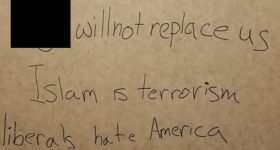 will not replace us
Islam is terrorism
liberals hate America